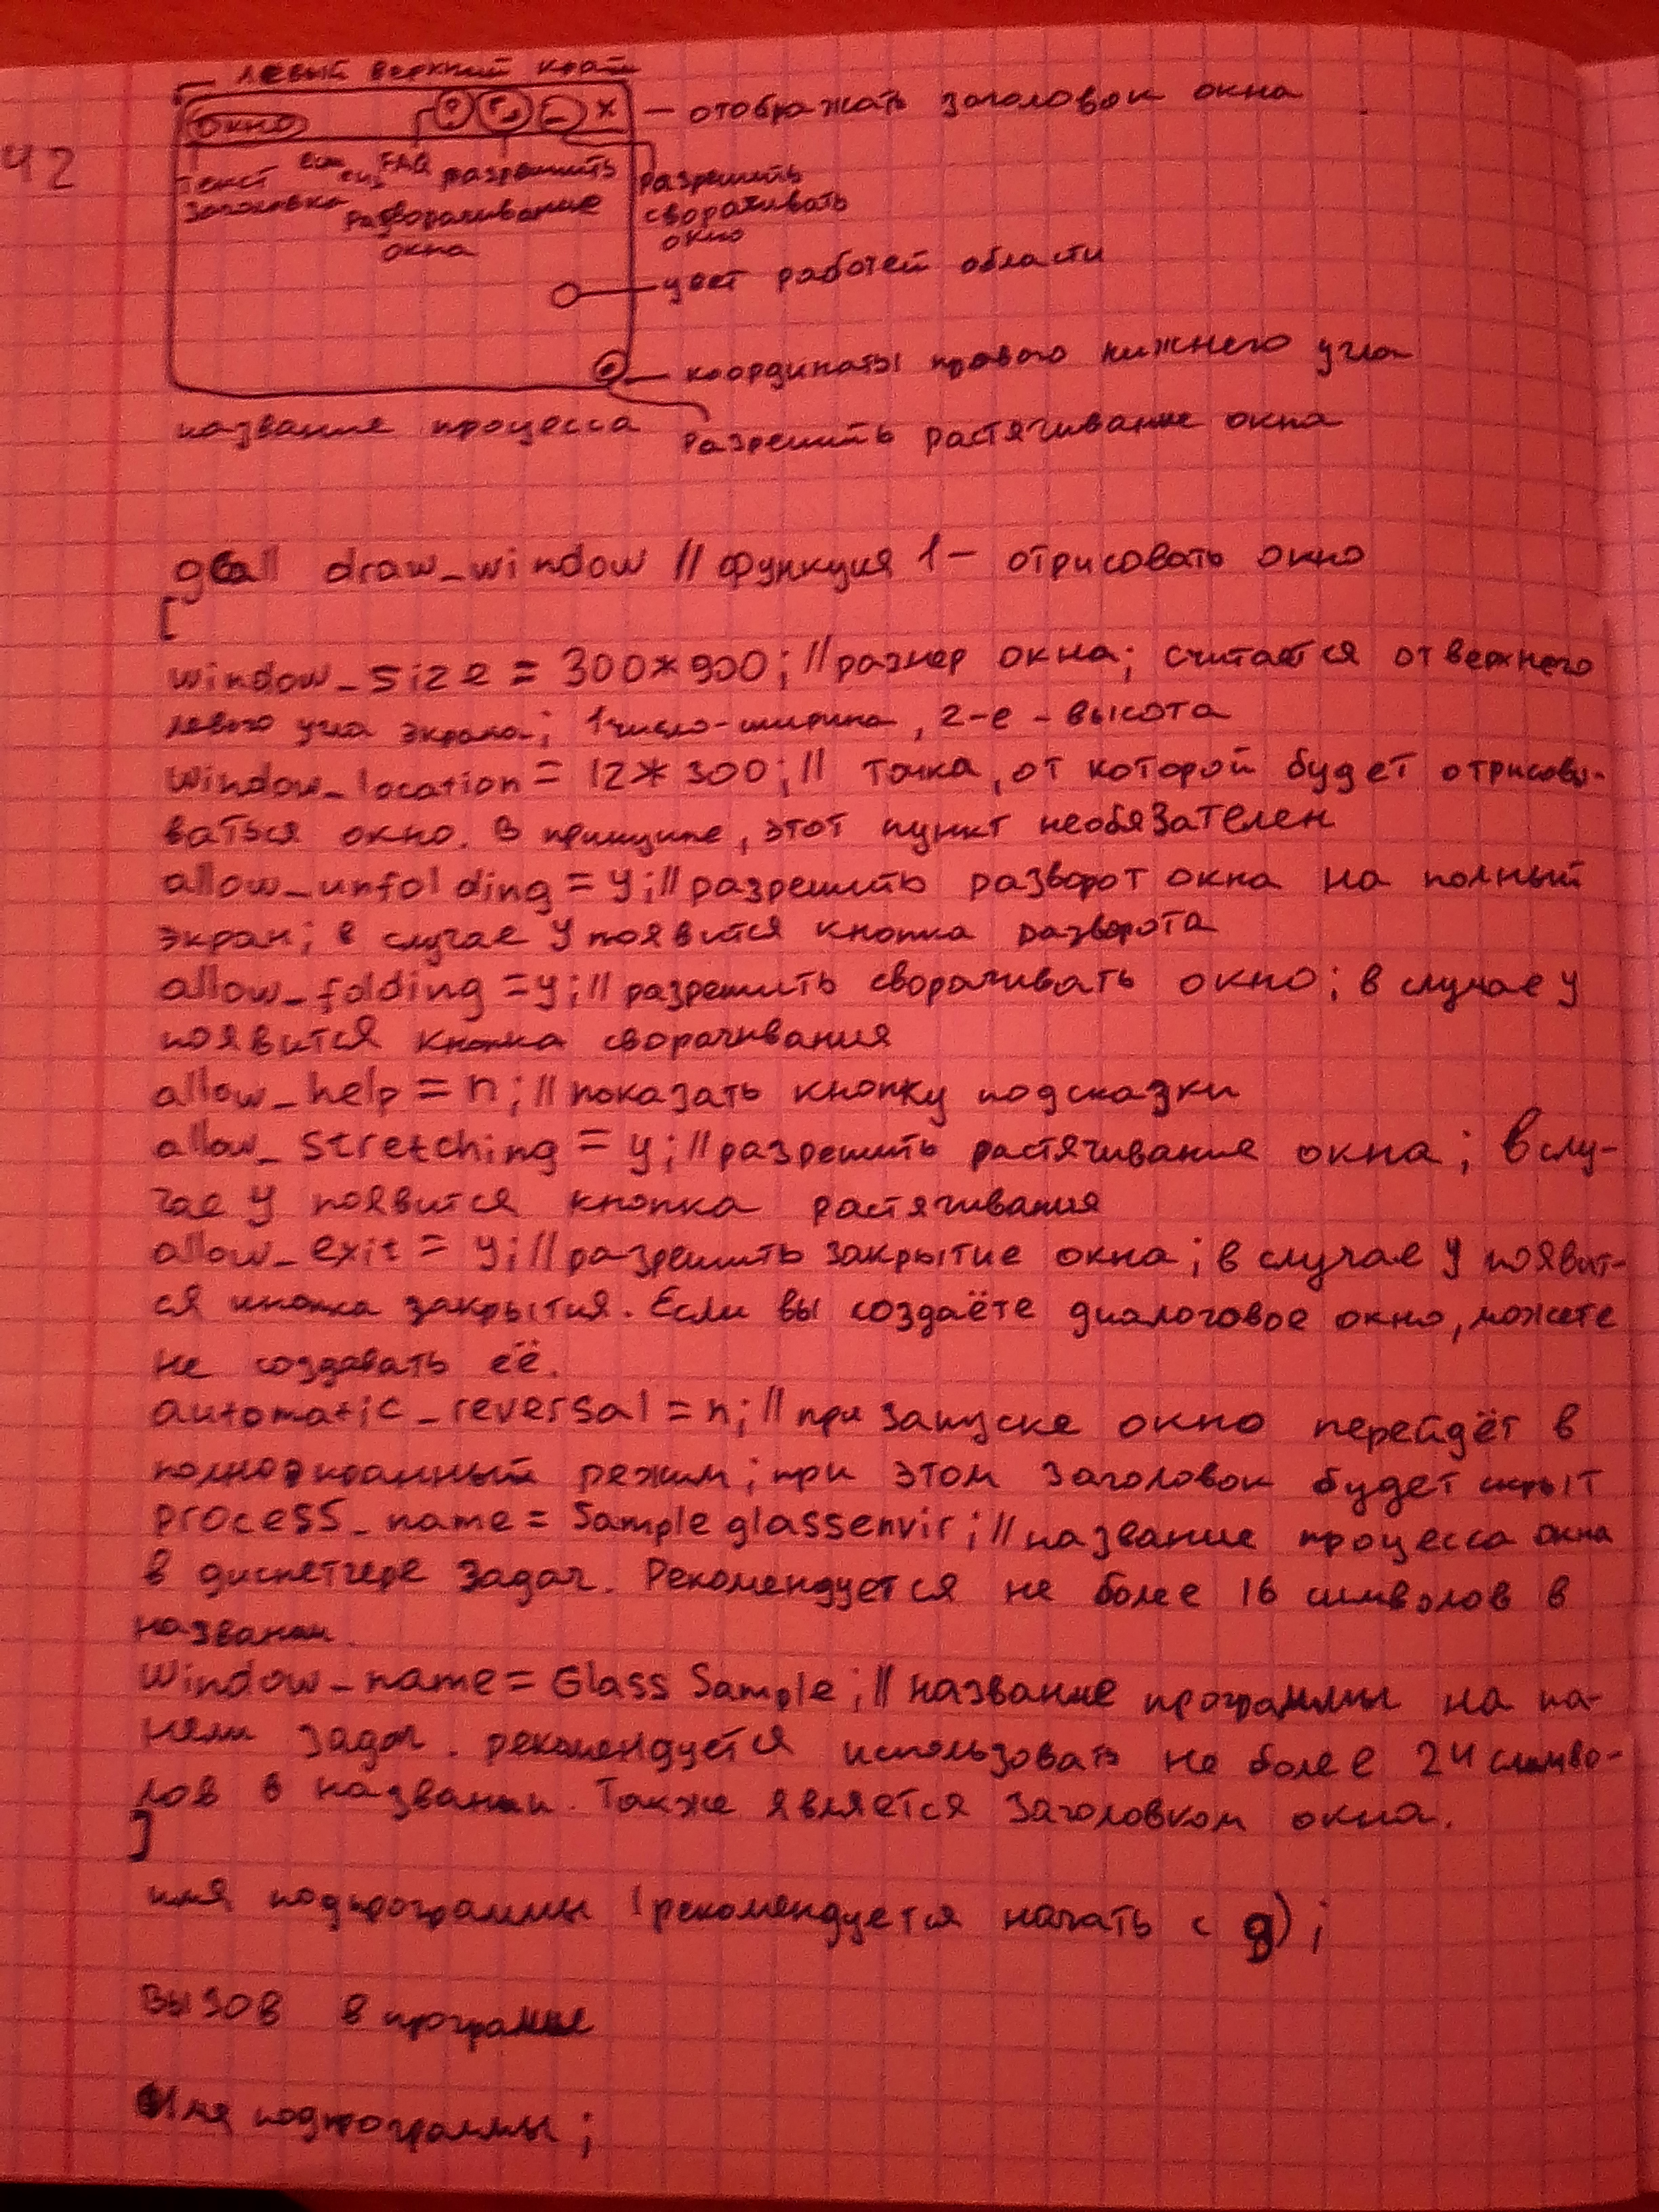 левый верхний край
окно
? × — отображать заголовок окна
42
текст
заголовка
FAQ
разрешить
разворачивание
окна
разрешить
сворачивать
окно
цвет рабочей области
координаты правого нижнего угла
название процесса
разрешить растягивание окна
gcall draw_window // функция 1 – отрисовать окно
[
window_size = 300*900; // размер окна; считается от верхнего
левого угла экрана; 1 число - ширина, 2-е - высота
window_location = 12*300; // точка, от которой будет отрисовы-
ваться окно. В принципе, этот пункт необязателен
allow_unfolding = y; // разрешить разворот окна на полный
экран; в случае y появится кнопка разворота
allow_folding = y; // разрешить сворачивать окно; в случае y
появится кнопка сворачивания
allow_help = n; // показать кнопку подсказки
allow_stretching = y; // разрешить растягивание окна; в слу-
чае y появится кнопка растягивания
allow_exit = y; // разрешить закрытие окна; в случае y появит-
ся кнопка закрытия. Если вы создаёте диалоговое окно, можете
не создавать её.
automatic_reversal = n; // при запуске окно перейдёт в
полноэкранный режим; при этом заголовок будет скрыт
process_name = Sample glassenvir; // название процесса окна
в диспетчере задач. Рекомендуется не более 16 символов в
названии.
Window_name = Glass Sample; // название программы на па-
нели задач. рекомендуется использовать не более 24 симво-
лов в названии. Также является заголовком окна.
]
имя подпрограммы (рекомендуется начать с g);
вызов в программе
Имя подпрограммы;